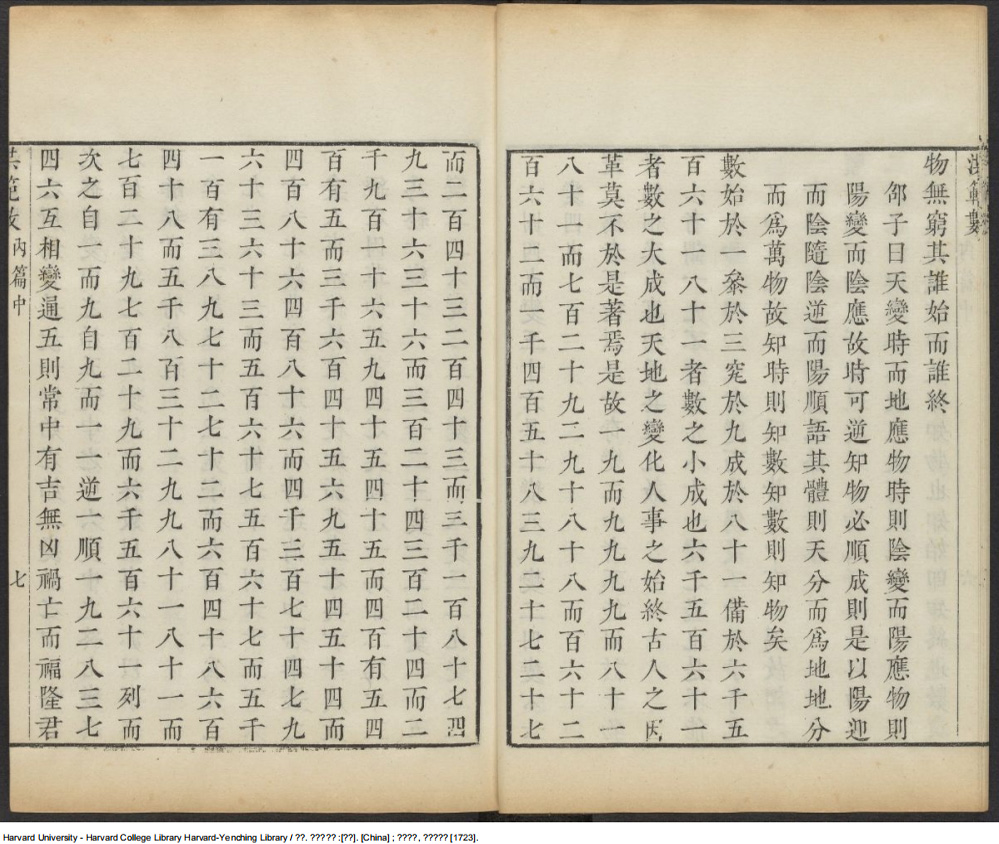 洪範數
物無窮其誰始而誰終
邵子曰天變時而地應物時則陰變而陽應物則
陽變而陰應故時可逆知物必順成則是以陽迎
而陰隨陰逆而陽順語其體則天分而爲地地分
而爲萬物故知時則知數知數則知物矣
數始於一叅於三究於九成於八十一備於六千五
百六十一八十一者數之小成也六千五百六十一
者數之大成也天地之變化人事之始終古人之因
革莫不於是著焉是故一九而九九九九而八十一
八十一而七百二十九二九十八十八而百六十二
百六十二而一千四百五十八三九二十七二十七
而二百四十三二百四十三而三千一百八十七四
九三十六三十六而三百二十四三百二十四而二
千九百一十六五九四十五四十五而四百有五四
百有五而三千六百四十五六九五十四五十四而
四百八十六四百八十六而四千三百七十四七九
六十三六十三而五百六十七五百六十七而五千
一百有三八九七十二七十二而六百四十八六百
四十八而五千八百三十二九九八十一八十一而
七百二十九七百二十九而六千五百六十一列而
次之自一而九自九而一一逆一順一九二八三七
四六互相變通五則常中有吉無凶禍亡而福隆君
洪範數 內篇中 七
Harvard University - Harvard College Library Harvard-Yenching Library / ??. ????? :[??]. [China] ; ????, ????? [1723].